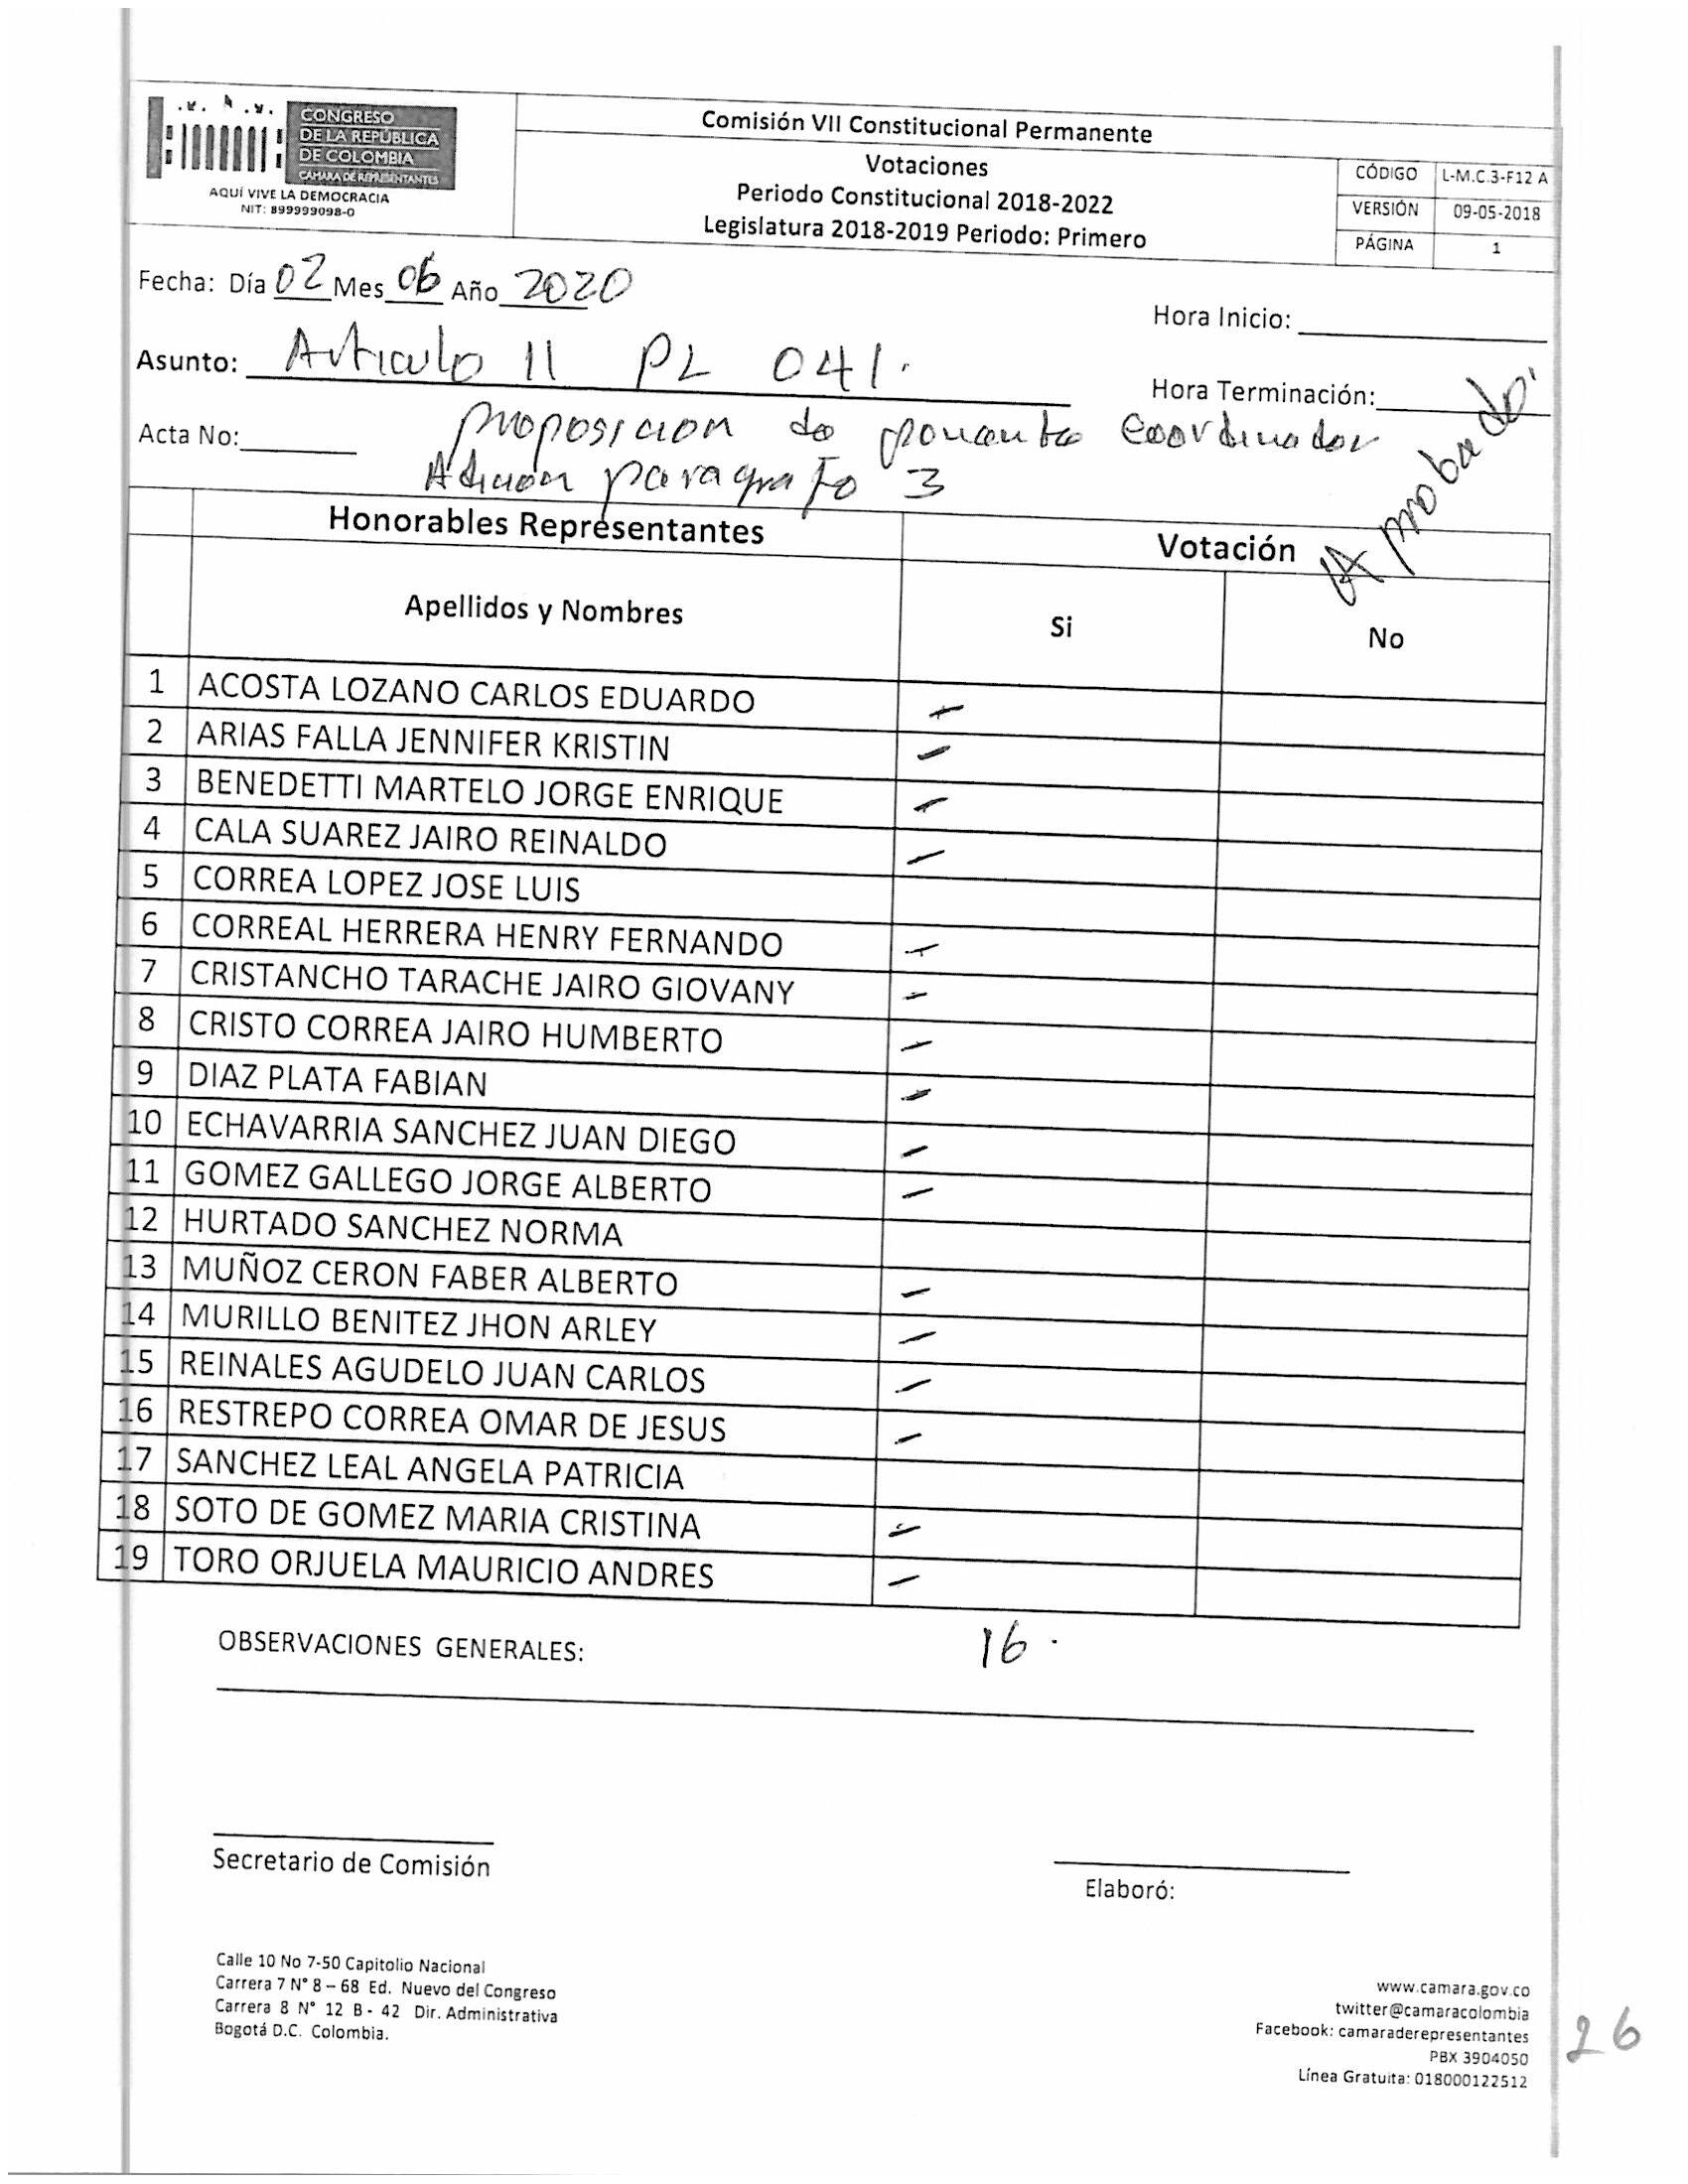 CONGRESO
DE LA REPÚBLICA
DE COLOMBIA
CÁMARA DE REPRESENTANTES
AQUÍ VIVE LA DEMOCRACIA
NIT: 899999098-0
Comisión VII Constitucional Permanente
Votaciones
Periodo Constitucional 2018-2022
Legislatura 2018-2019 Periodo: Primero
CÓDIGO L-M.C.3-F12 A
VERSIÓN 09-05-2018
PÁGINA 1
Fecha: Día 02 Mes 06 Año 2020
Hora Inicio:
Asunto: Artículo 11 PL 041.
Hora Terminación:
Acta No:
proposicion de ponente coordinador
Adicion paragrafo 3
Aprobado
Honorables Representantes Votación
Apellidos y Nombres Si No
1 ACOSTA LOZANO CARLOS EDUARDO
2 ARIAS FALLA JENNIFER KRISTIN
3 BENEDETTI MARTELO JORGE ENRIQUE
4 CALA SUAREZ JAIRO REINALDO
5 CORREA LOPEZ JOSE LUIS
6 CORREAL HERRERA HENRY FERNANDO
7 CRISTANCHO TARACHE JAIRO GIOVANY
8 CRISTO CORREA JAIRO HUMBERTO
9 DIAZ PLATA FABIAN
10 ECHAVARRIA SANCHEZ JUAN DIEGO
11 GOMEZ GALLEGO JORGE ALBERTO
12 HURTADO SANCHEZ NORMA
13 MUÑOZ CERON FABER ALBERTO
14 MURILLO BENITEZ JHON ARLEY
15 REINALES AGUDELO JUAN CARLOS
16 RESTREPO CORREA OMAR DE JESUS
17 SANCHEZ LEAL ANGELA PATRICIA
18 SOTO DE GOMEZ MARIA CRISTINA
19 TORO ORJUELA MAURICIO ANDRES
OBSERVACIONES GENERALES: 16.
Secretario de Comisión
Elaboró:
Calle 10 No 7-50 Capitolio Nacional
Carrera 7 N° 8 – 68 Ed. Nuevo del Congreso
Carrera 8 N° 12 B - 42 Dir. Administrativa
Bogotá D.C. Colombia.
www.camara.gov.co
twitter@camaracolombia
Facebook: camaraderepresentantes
PBX 3904050
Línea Gratuita: 018000122512
26